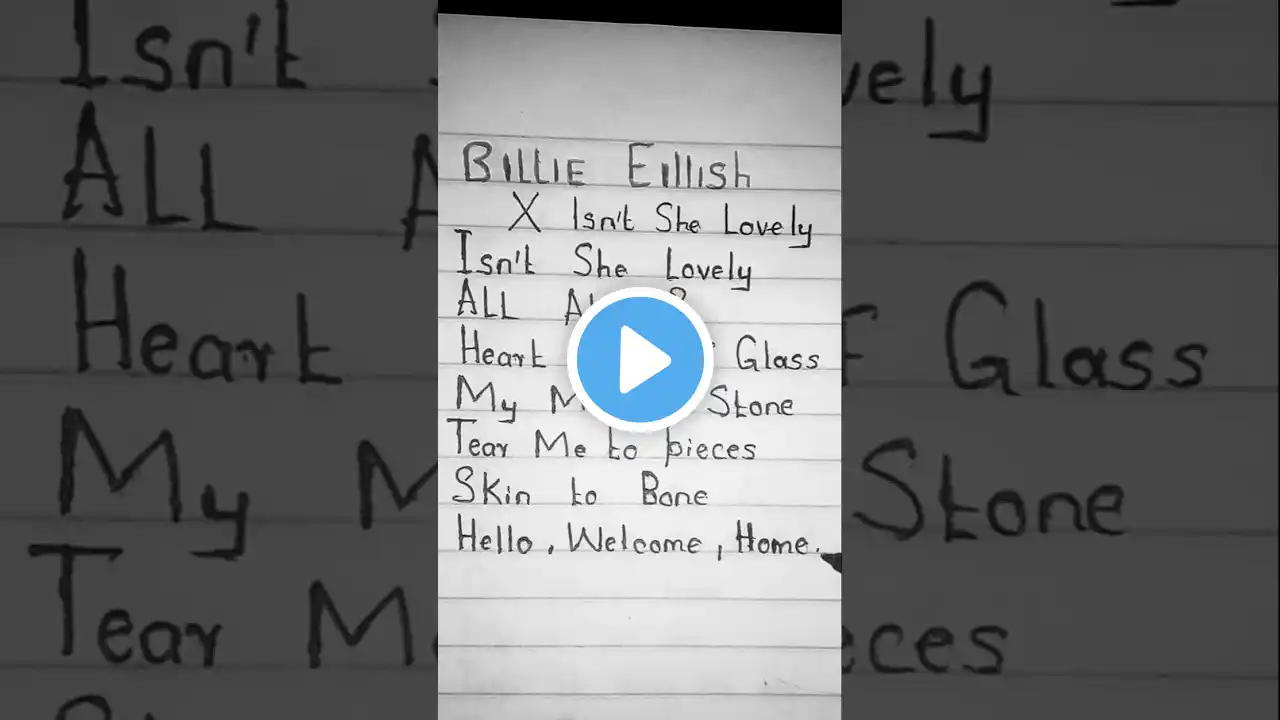 BILLIE EILLISH
X Isn't She Lovely
Isn't She Lovely
ALL
Heart Glass
My Stone
Tear Me to pieces
Skin to Bone
Hello, Welcome, Home.